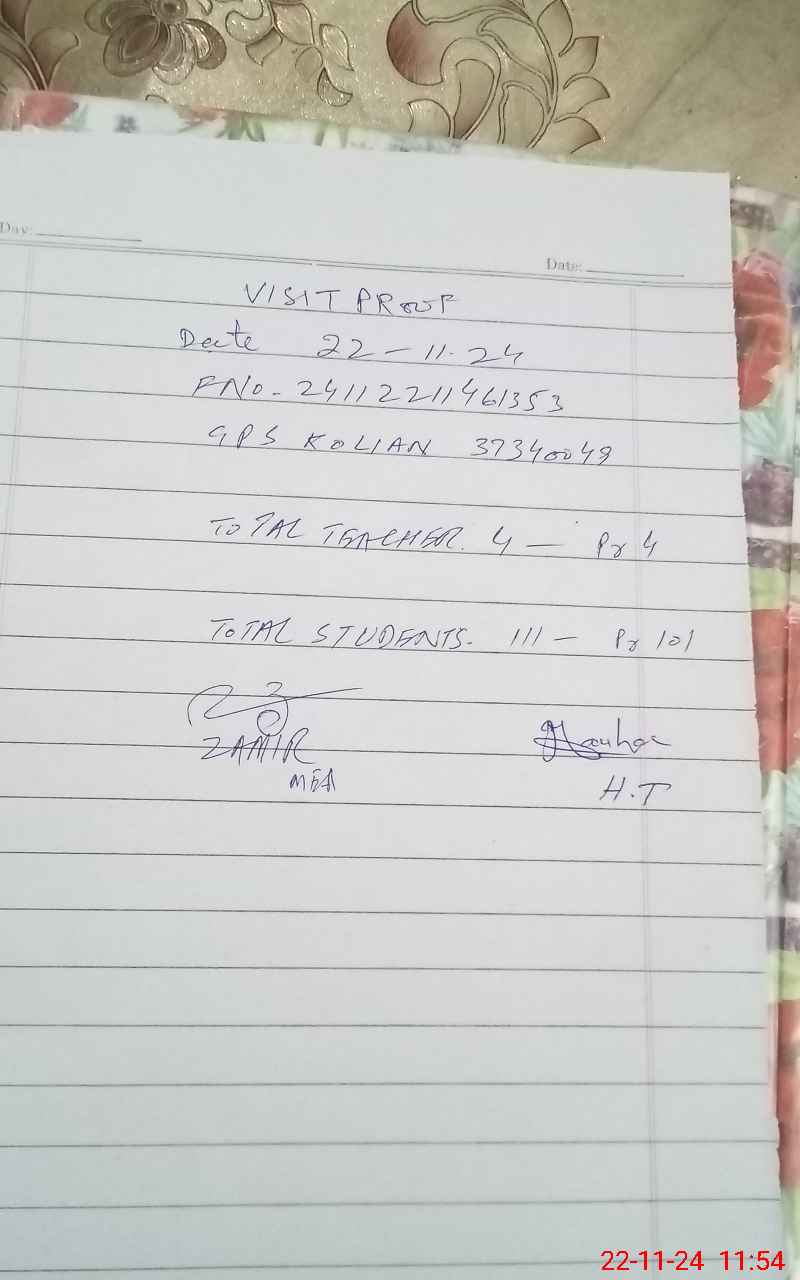 Day:
Date:
VISIT PROOF
Date 22-11-24
FNo. 24112211461353
GPS KOLIAN 37340049
TOTAL TEACHER. 4 — Pr 4
TOTAL STUDENTS. 111 — Pr 101
ZAMIR
MEA
H.T
22-11-24 11:54